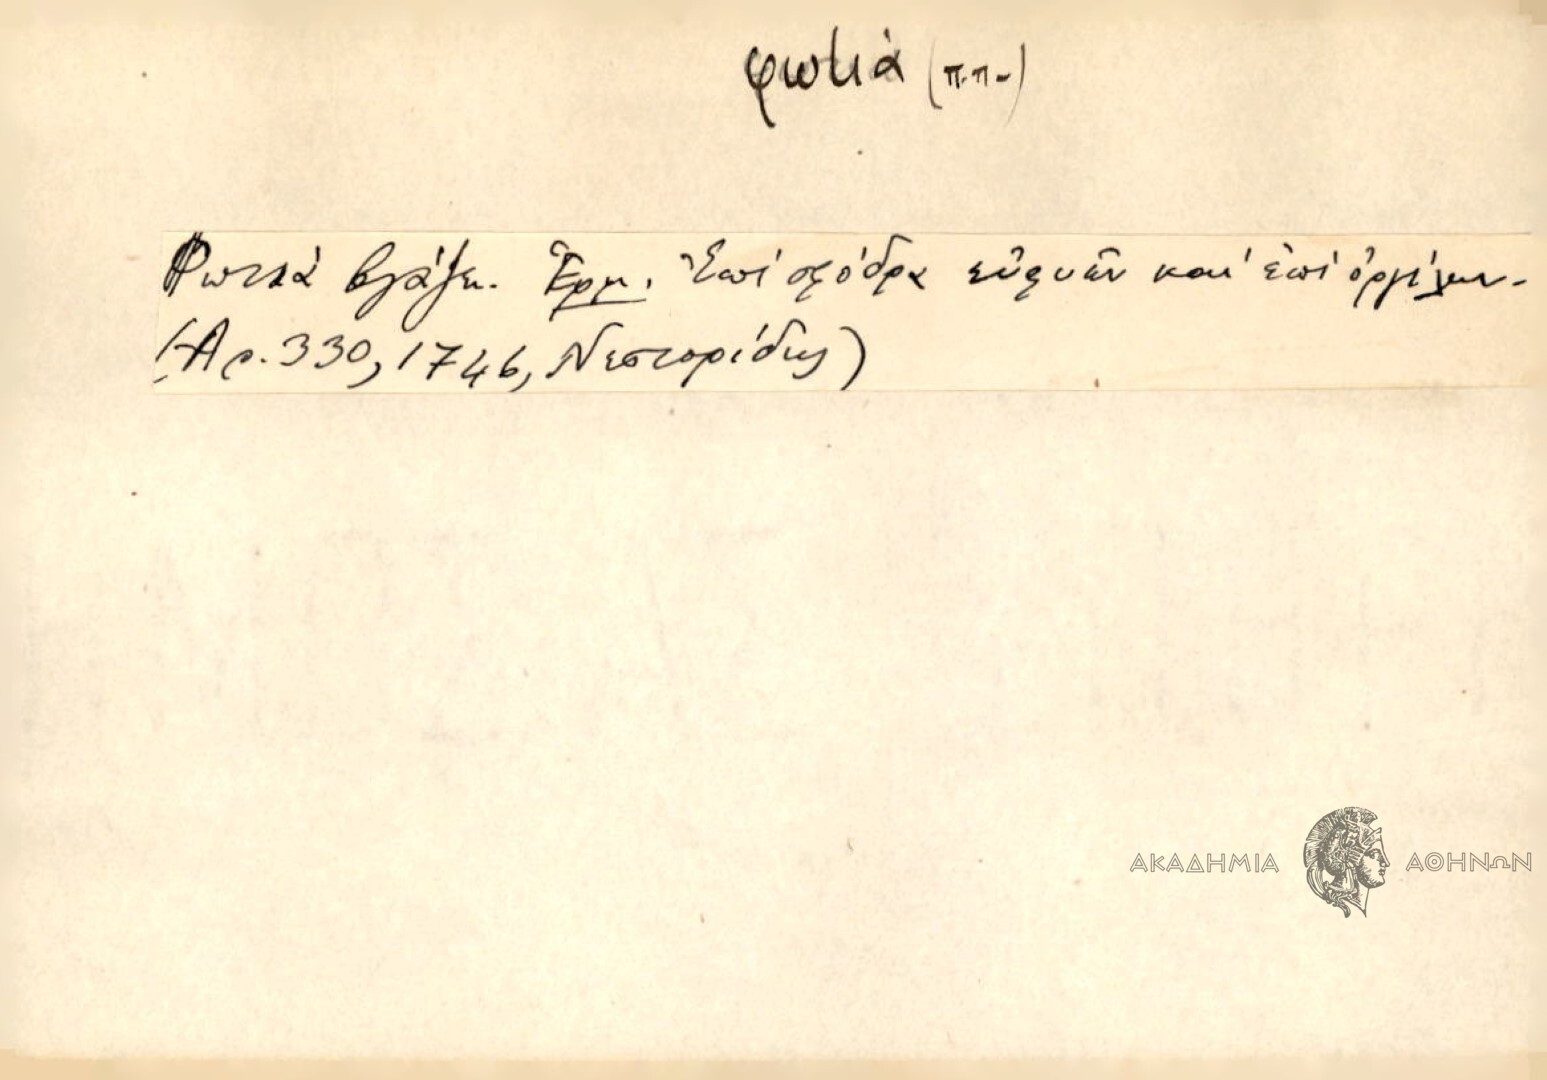 φωτιὰ (π.π.)
Φωτιὰ βγάζει. Ἑρμ. Ἐπὶ σφόδρα εὐφυῶν καὶ ἐπὶ ὀργίλων.
(Ἀρ. 330, 1746, Νεστορίδης)
ΑΚΑΔΗΜΙΑ ΑΘΗΝΩΝ